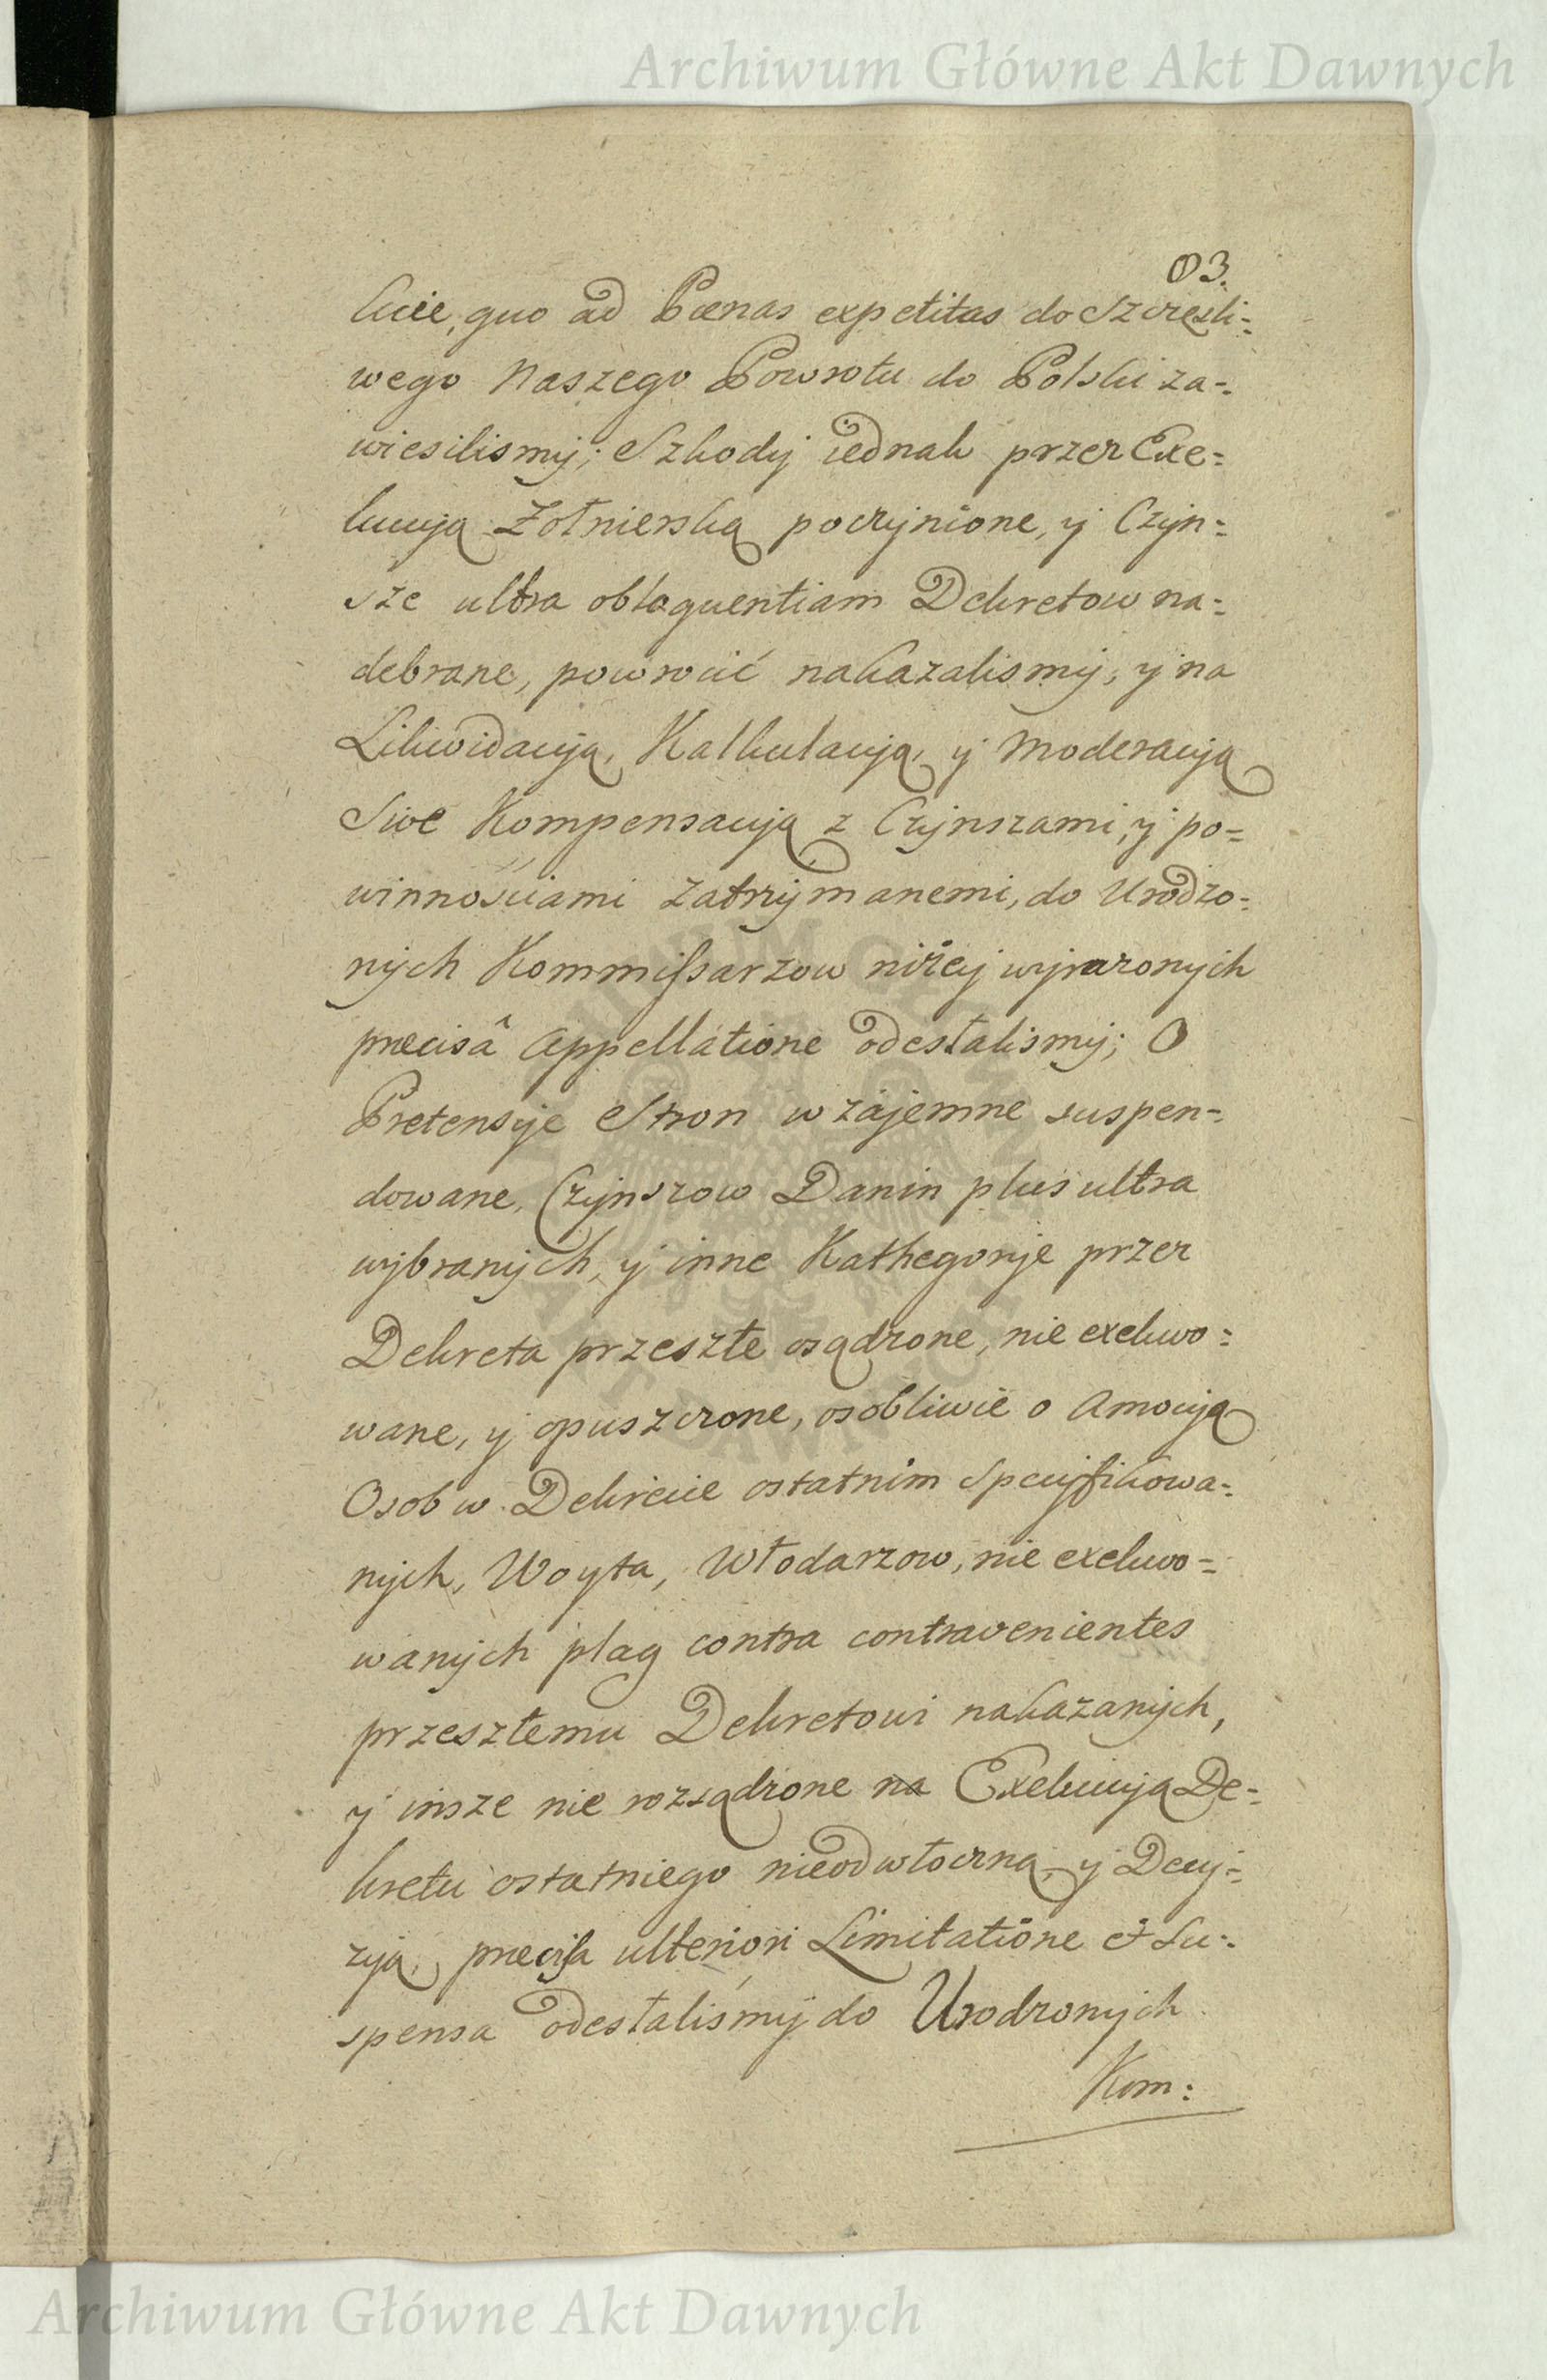 Archiwum Główne Akt Dawnych
03.
kcie, quo ad Pœnas expetitas do Szczęśli=
wego Naszego Powrotu do Polski za=
wiesilismy; Szkody iednak przez Exe=
kucyą Żołnierską poczynione, y Czyn=
sze ultra obloquentiam Dekretow na=
debrane, powrocić nakazalismy, y na
Likwidacyą, Kalkulacyą, y Moderacyą
Sive Kompensacyą z Czynszami, y po=
winnościami zatrzymanemi, do Urodzo=
nych Kommissarzow niżey wyrażonych
præcisâ Appellatione odesłalismy; O
Pretensye Stron wzajemne suspen=
dowane, Czynszow Danin plus ultra
wybranych, y inne Kathegorye przez
Dekreta przeszłe osądzone, nie exekwo=
wane, y opuszczone, osobliwie o Amocyą
Osob w Dekrecie ostatnim specyfikowa=
nych, Woyta, Włodarzow, nie exekwo=
wanych plag contra contravenientes
przeszłemu Dekretowi nakazanych,
y insze nie rozsądzone na Exekucyą De=
kretu ostatniego nieodwłoczną, y Decy=
zyą, præcisa ulteriori Limitatione et Su=
spensa odesłaliśmy do Urodzonych
Kom:
Archiwum Główne Akt Dawnych